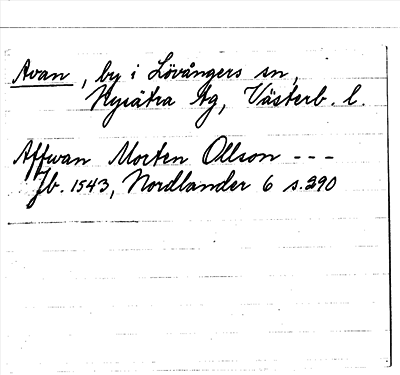 Avan, by i Lövångers sn,
Nysätra tg, Västerb. l.
Affwan Morten Ollson ---
Jb. 1543, Nordlander 6 s. 290